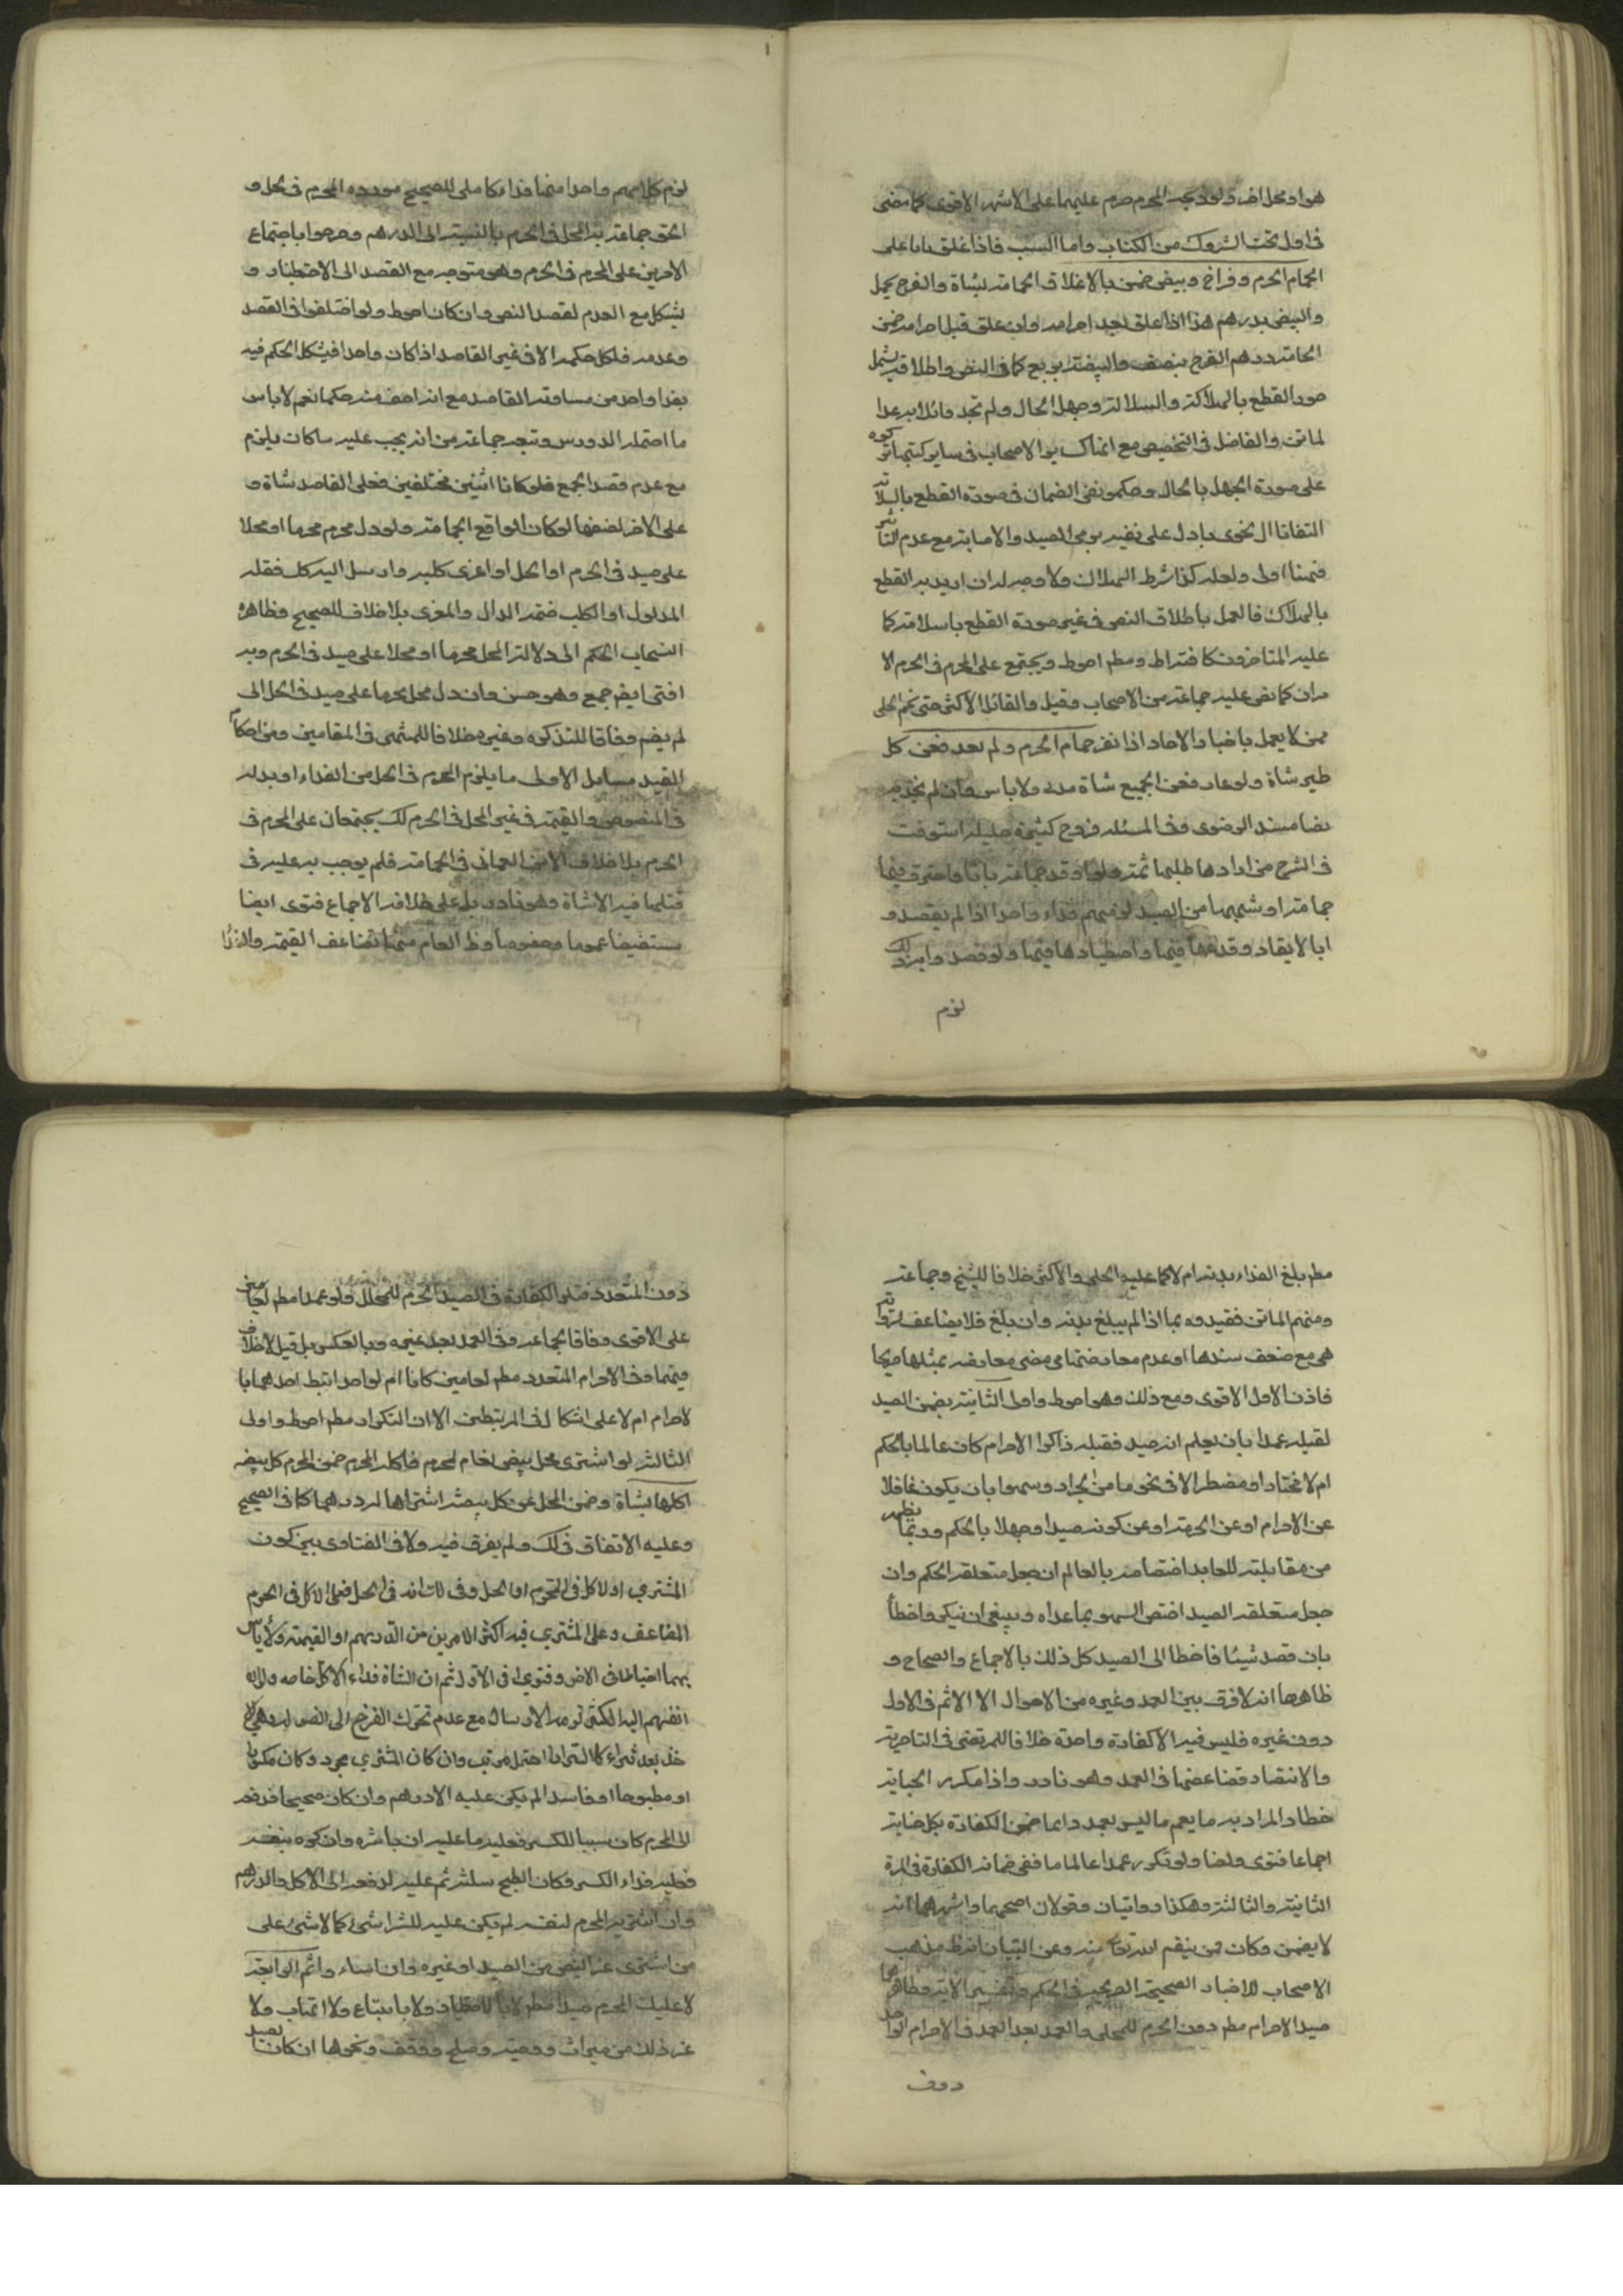 هو او محل اخر ولو ذبحه المحرم حرم عليهما على الاشهر الاقوى كما مضى
فى اول تحت التروك من الكتاب واما السبب فاذا اغلق بابا على
الحمام الحرم وفراخ وبيض ضمن بالاغلاق الحمامة بشاة والفرخ بحمل
والبيض بدرهم هذا اذا اغلق بعد احرامه وان غلق قبل احرامه ضمن
الحامة بدرهم الفرخ بنصف والبيضة بربع كما فى النص واطلاقه يشمل
صور القطع بالهلاكة والسلامة وجهل الحال ولم نجد قائلا به عدا
لماتن والفاضل فى التلخيص مع انهما كساير الاصحاب فى ساير كتبهما
على صورة الجهل بالحال وحكموا بنفى الضمان فى صورة القطع بالسلامة
التفاتا الى فحوى ما دل على نفيه برمى الصيد والاصابة مع عدم التأثير
فهنا اولى ولعله كذا شرط الهلاك ولا وجه له ان اريد به القطع
بالهلاك فالعمل باطلاق النص فى غير صورة القطع بالسلامة كما
عليه المتاخرون كافة مط احوط ويجتمع على المحرم فى الحرم الا
مران كما نص عليه جماعة من الاصحاب وقيل والقائل الاكثر حتى نحو الحلى
ممن لا يعمل باخبار الاحاد اذا نفر حمام الحرم ولم يعد فعن كل
طير شاة ولو عاد فعن الجميع شاة ولا باس وان لم نجد به
نصا مسند الرضوى وفى المسئلة فروع كثيرة جليلة استوفيت
فى الشرح من ارادها طلبها ثمة ولو اوقد جماعة نارا فاحترق فيها
حمامة او شبهها من الصيد لزمهم فداء واحد اذا لم يقصدوا
بالايقاد وقدعها فيها واصطيادها فيها ولو قصدوا به ذلك
لزم
لزم كل امرء واحد منهم فداء كامل للصحيح مورده المحرم فى الحل و
الحق جماعة به المحل فى الحرم بالنسبة الى الدرهم وصرحوا باجتماع
الامرين على المحرم فى الحرم وهو متوجه مع القصد الى الاصطياد و
يشكل مع العدم لفقد النص وان كان احوط ولو اختلفوا فى القصد
وعدمه فلكل حكمه الا فى غير القاصد اذا كان واحدا فيشكل الحكم فيه
بفداء واحد من مساوقة القاصد مع انه اخف منه حكما نعم لا باس
ما احتمله الدروس وتبعه جماعة من انه يجب عليه ما كان يلزم
مع عدم قصد الجميع فلو كانا اثنين مختلفين فعلى القاصد شاة و
على الاخر نصفها لو كان الواقع الحمامة ولو دل محرم محرما او محلا
على صيد فى الحرم او الحل او اغرى كلبه وارسل اليه كل فقتله
المدلول او الكلب ضمنه الدال والمغرى بلا خلاف للصحيح وظاهره
انسحاب الحكم الى دلالة المحل محرما او محلا على صيد فى الحرم وبه
افتى ايض جمع وهو حسن وان دل محل محرما على صيد فى الحل الى
لم يضم وفاقا للتذكرة وغيره خلافا للمنتهى فى المقامين ومن احكام
الصيد مسايل الاولى ما يلزم المحرم فى الحل من الفداء او بدله
فى المنصوص والقيمة فى غير المحل فى الحرم لكـ يجتمعان على المحرم فى
الحرم بلا خلاف الا من العمانى فى الحمامة فلم يوجب به عليه فى
قتلها فيه الا شاة وهو نادر بل على خلافه الاجماع فتوى ايضا
مستفيضا عموما وخصوصا وظ العام منها تضاعف القيمة والفداء
مط بلغ الفداء بدنة ام لا كما عليه الحلى والاكثر خلافا للشيخ وجماعة
ومنهم الماتن فقيدوه بما اذا لم يبلغ بدنة وان بلغ فلا يضاعف لرواية
هى مع ضعف سندها او عدم معارضتها مضى معارضة بمثلها صريحا
فاذن الاول الاقوى ومع ذلك وهو احوط واولى الثانية يضمن الصيد
لقتله عمدا بان يعلم انه صيد فقتله ذاكرا لاحرام كان عالما بالحكم
ام لا مختارا او مضطرا الا فى نحو ما من الجراد وسهوا بان يكون غافلا
عن الاحرام او عن الحرمة او عن كونه صيدا وجهلا بالحكم وربما يظهر
من مقابلته للعامد اختصاصه بالعالم ان جعل متعلقه الحكم وان
جعل متعلقه الصيد اختص السهو بما عداه وينبغى ان يكون خطأ
بان قصد شيئا فاخطا الى الصيد كل ذلك بالاجماع والصحاح و
ظاهرها انه لا فرق بين العمد وغيره من الاحوال الا الاثم فى الاول
دون غيره فليس فيه الا كفارة واحدة خلافا للمرتضى فى الناصرية
والانتصار فضاعفها فى العمد وهو نادر واذا تكرر الجناية
خطا والمراد به ما يعم ما ليس بعمد دايما ضمن الكفارة بكل جناية
اجماعا فتوى ونصا ولو تكرر عمدا عالما ففى ضمانه الكفارة فى المرة
الثانية والثالثة وهكذا روايتان وقولان اصحهما واشهرهما انه
لا يضمن وكان ممن ينتقم الله تعالى منه وعن التبيان انه ظ مذهب
الاصحاب للاخبار الصحيحة الصريحة فى الحكم وتفسير الاية وظاهرها
صيد الاحرام مط دون الحرم للمحل والعمد بعد العمد فى الاحرام الواحد
دون
دون المتعدد فتلو الكفارة فى الصيد الحرم للمحلل ولو عمدا مط
على الاقوى وفاقا لجماعة وفى العمد بعد غيره وبالعكس بل قيل لا خلاف
فيهما وفى الاحرام المتعدد مط لعامين كانا ام لواحد ارتبط احدهما با
لاحرام ام لا على اشكال فى المرتبطين الا ان التكرار مط احوط واولى
الثالثة لو اشترى محل بيض نعام لمحرم فاكله المحرم ضمن المحرم كل بيضة
اكلها بشاة وضمن المحل عن كل بيضة اشتراها له درهما كما فى الصحيح
وعليه الاتفاق فى ذلك ولم يفرق فيه ولا فى الفتاوى بين كون
المشترى او الاكل فى الحرم او الحل وفى انه فى الحل فعلى الاكل فى الحرم
المضاعف وعلى المشترى فيه اكثر الامرين من الدرهم او القيمة ولا باس
بهما احتياطا فى الاخر وفتوى فى الاول ثم ان الشاة فداء الاكل خاصة
انضم اليه الكسر مع عدم تحرك الفرخ
خذ بعد شراء وان كان المشترى مجرد وكان مكسورا
او مطبوخا او فاسدا لم يكن عليه الا درهم وان كان صحيحا فدفعه
الى المحرم كان سببا للكسر فعليه ما عليه ان باشره وان كسره بنفسه
فعليه فداء الكسر وكان الطبخ مثله ثم عليه لدفعه الى الاكل الدرهم
وان اشتريه المحرم لنفسه لم يكن عليه للشرا شئ كما لا شئ على
من اشترى غير البيض من الصيد او غيره وان اساء واثم الرابعة
لا يملك المحرم صيدا مط لا باصطياد ولا بابتياع ولا اتهاب ولا
غير ذلك من ميراث ووصية وصلح ووقف ونحوها ان كان